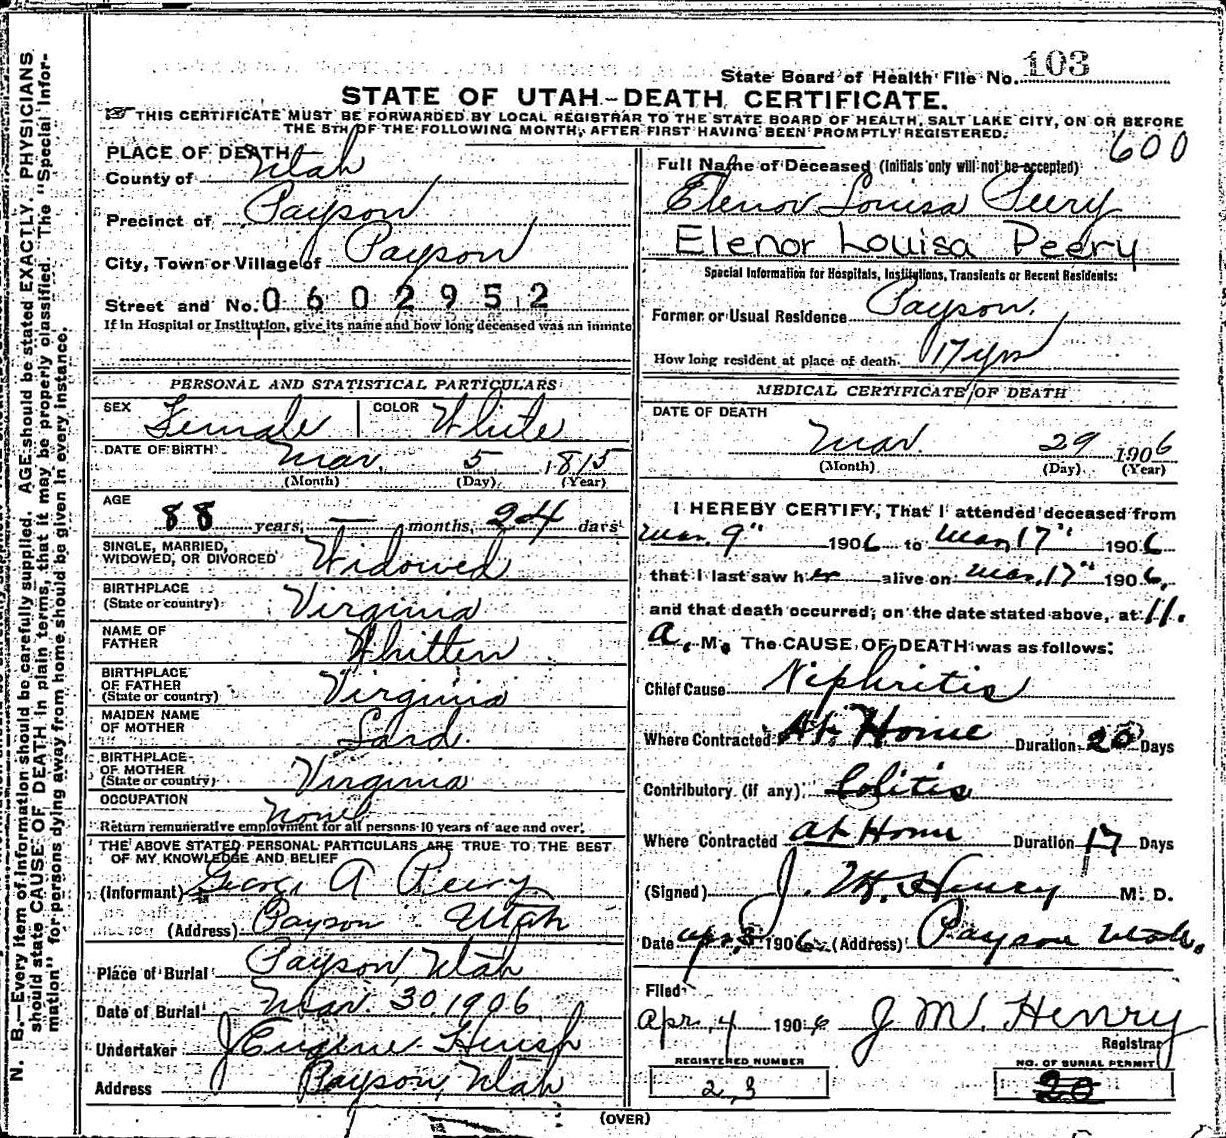 State Board of Health File No. 103
STATE OF UTAH-DEATH CERTIFICATE.
THIS CERTIFICATE MUST BE FORWARDED BY LOCAL REGISTRAR TO THE STATE BOARD OF HEALTH, SALT LAKE CITY, ON OR BEFORE
THE 5TH OF THE FOLLOWING MONTH, AFTER FIRST HAVING BEEN PROMPTLY REGISTERED.
600
PLACE OF DEATH
County of Utah
Precinct of Payson
City, Town or Village of Payson
Street and No. 0602952
If in Hospital or Institution, give its name and how long deceased was an inmate
PERSONAL AND STATISTICAL PARTICULARS
SEX Female COLOR White
DATE OF BIRTH Mar. 5 1815
(Month) (Day) (Year)
AGE 88 years, — months, 24 days
SINGLE, MARRIED,
WIDOWED, OR DIVORCED Widowed
BIRTHPLACE
(State or country) Virginia
NAME OF
FATHER Whitten
BIRTHPLACE
OF FATHER
(State or country) Virginia
MAIDEN NAME
OF MOTHER Lard.
BIRTHPLACE
OF MOTHER
(State or country) Virginia
OCCUPATION None
Return remunerative employment for all persons 10 years of age and over.
THE ABOVE STATED PERSONAL PARTICULARS ARE TRUE TO THE BEST
OF MY KNOWLEDGE AND BELIEF
(Informant) George A Peery
(Address) Payson Utah
Place of Burial Payson, Utah
Date of Burial Mar. 30, 1906
Undertaker J Eugene Huish
Address Payson, Utah
Full Name of Deceased (Initials only will not be accepted)
Elenor Louisa Peery
Elenor Louisa Peery
Special Information for Hospitals, Institutions, Transients or Recent Residents:
Former or Usual Residence Payson.
How long resident at place of death. 17 yrs
MEDICAL CERTIFICATE OF DEATH
DATE OF DEATH
Mar. 29 1906
(Month) (Day) (Year)
I HEREBY CERTIFY, That I attended deceased from
Mar. 9" 1906 to Mar, 17" 1906
that I last saw her alive on Mar, 17" 1906,
and that death occurred, on the date stated above, at 11.
a. M. The CAUSE OF DEATH was as follows:
Chief Cause Niphritis
Where Contracted At Home Duration 20 Days
Contributory (if any) Colitis
Where Contracted at Home Duration 17 Days
(Signed) J. M. Henry M. D.
Date Apr, 1906 (Address) Payson Utah.
Filed
Apr, 4 1906 J M. Henry
Registrar
REGISTERED NUMBER
23
NO. OF BURIAL PERMIT
20
(OVER)
N. B.—Every item of information should be carefully supplied. AGE should be stated EXACTLY. PHYSICIANS
should state CAUSE OF DEATH in plain terms, that it may be properly classified. The "Special Infor-
mation" for persons dying away from home should be given in every instance.